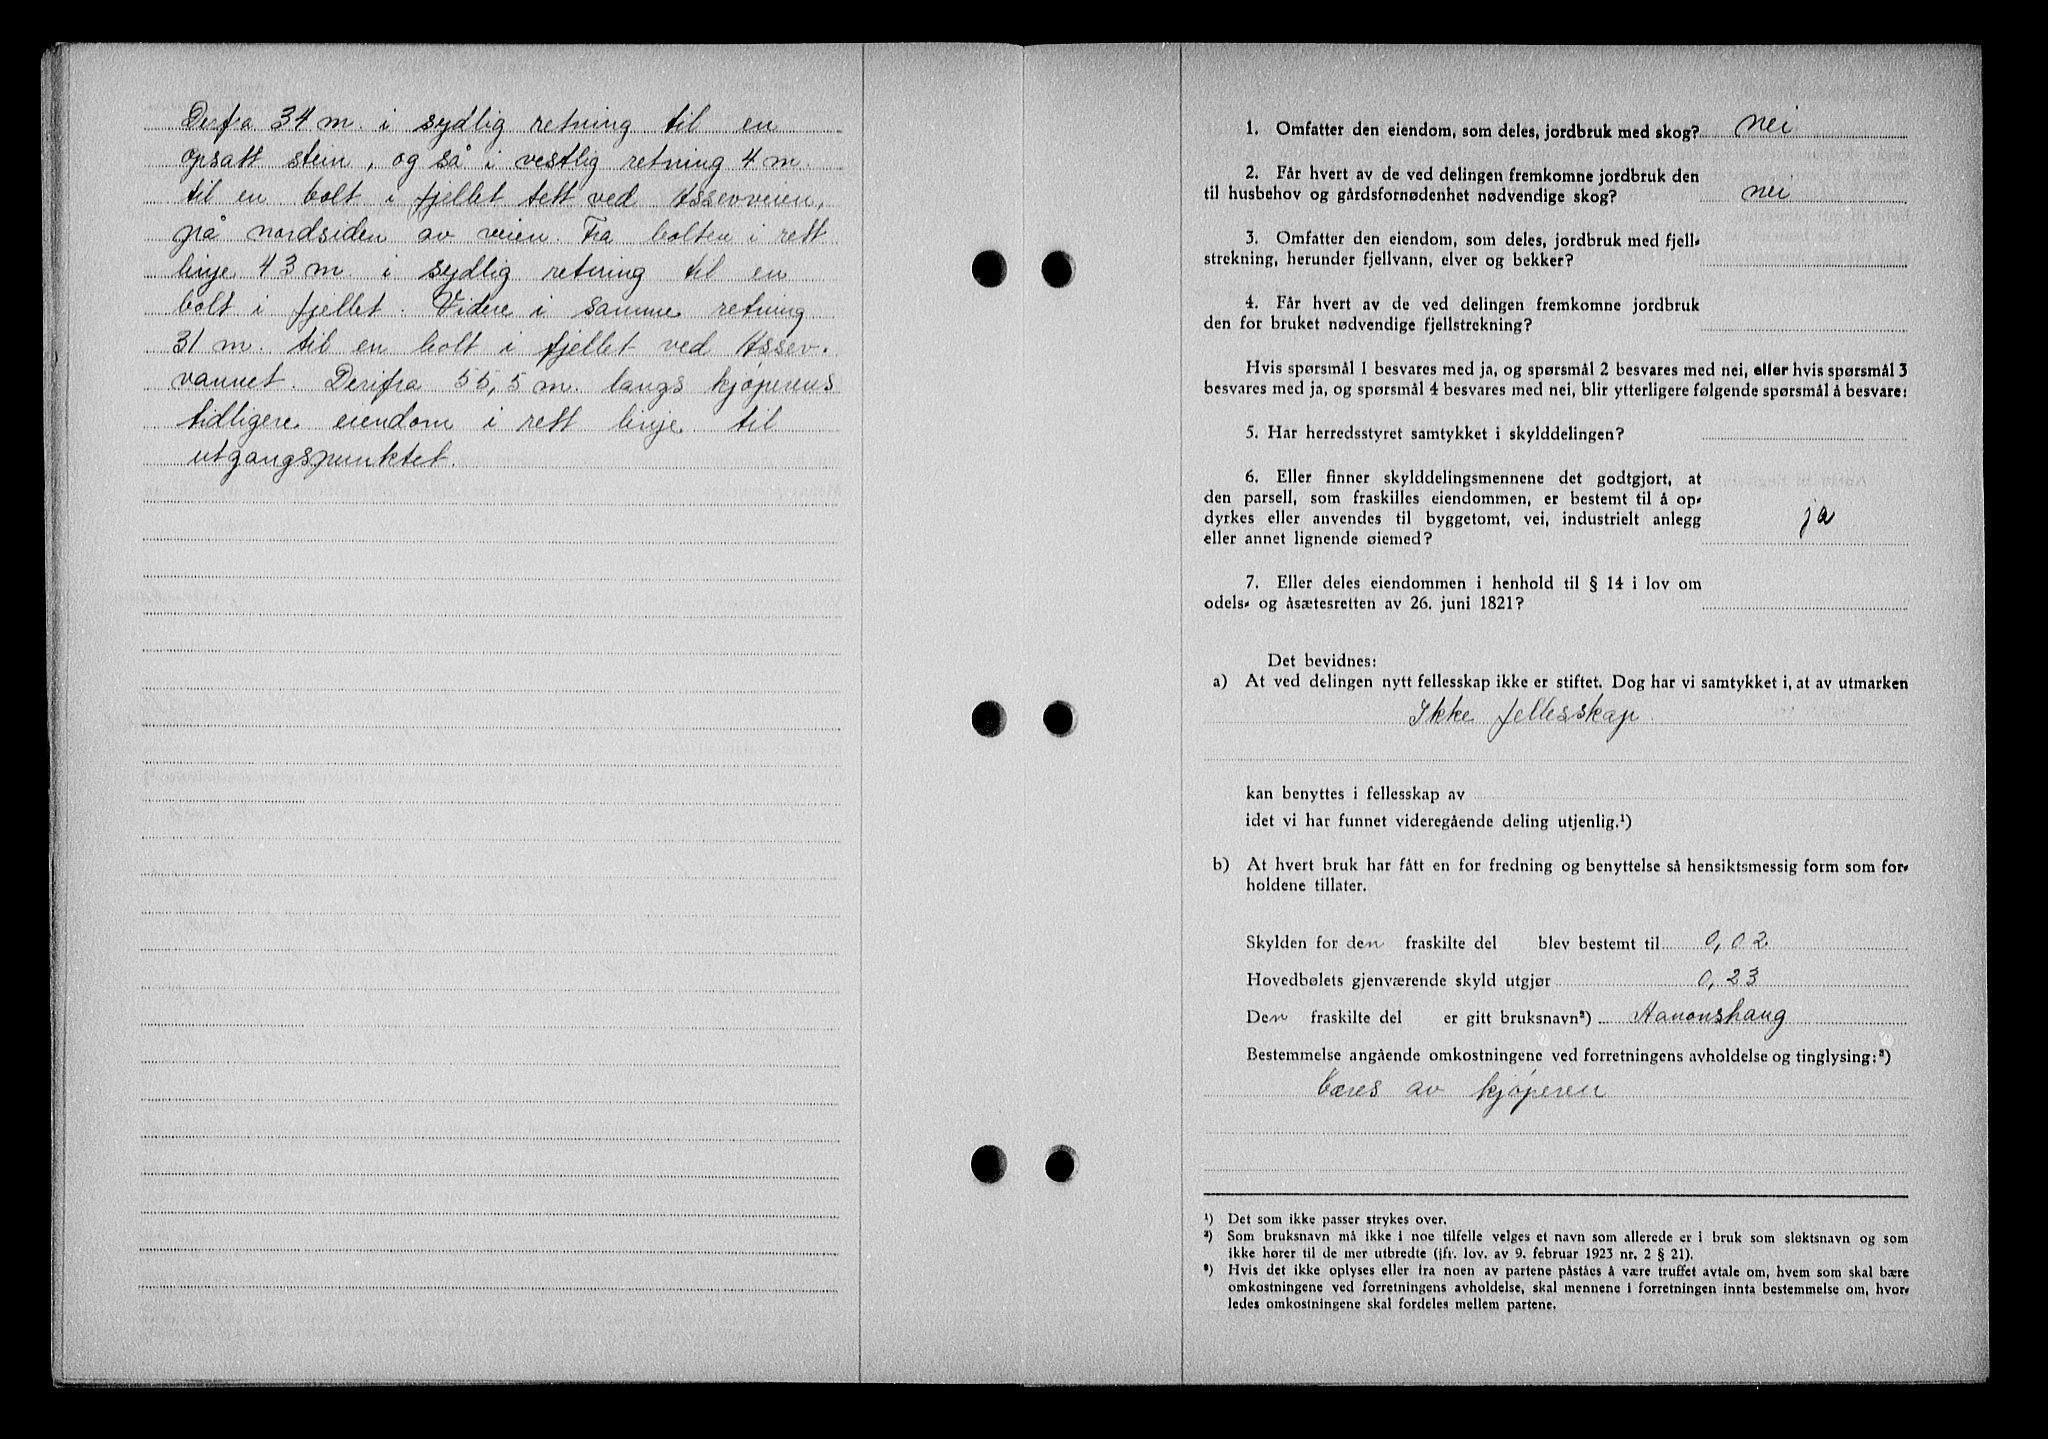 Derfra 34 m. i sydlig retning til en
opsatt stein, og så i vestlig retning 4 m.
til en bolt i fjellet tett ved Assevveien,
på nordsiden av veien. Fra bolten i rett
linje 43 m. i sydlig retning til en
bolt i fjellet. Videre i samme retning
31 m. til en bolt i fjellet ved Assev-
vannet. Derifra 55,5 m. langs kjøperens
tidligere eiendom i rett linje til
utgangspunktet.
1. Omfatter den eiendom, som deles, jordbruk med skog? nei
2. Får hvert av de ved delingen fremkomne jordbruk den
til husbehov og gårdsfornødenhet nødvendige skog? nei
3. Omfatter den eiendom, som deles, jordbruk med fjell-
strekning, herunder fjellvann, elver og bekker?
4. Får hvert av de ved delingen fremkomne jordbruk
den for bruket nødvendige fjellstrekning?
Hvis spørsmål 1 besvares med ja, og spørsmål 2 besvares med nei, eller hvis spørsmål 3
besvares med ja, og spørsmål 4 besvares med nei, blir ytterligere følgende spørsmål å besvare:
5. Har herredsstyret samtykket i skylddelingen?
6. Eller finner skylddelingsmennene det godtgjort, at
den parsell, som fraskilles eiendommen, er bestemt til å op-
dyrkes eller anvendes til byggetomt, vei, industrielt anlegg
eller annet lignende øiemed? ja
7. Eller deles eiendommen i henhold til § 14 i lov om
odels- og åsætesretten av 26. juni 1821?
Det bevidnes:
a) At ved delingen nytt fellesskap ikke er stiftet. Dog har vi samtykket i, at av utmarken
Ikke fellesskap.
kan benyttes i fellesskap av
idet vi har funnet videregående deling utjenlig.¹)
b) At hvert bruk har fått en for fredning og benyttelse så hensiktsmessig form som for-
holdene tillater.
Skylden for den fraskilte del blev bestemt til 0,02
Hovedbølets gjenværende skyld utgjør 0,23
Den fraskilte del er gitt bruksnavn²) Aanonshaug
Bestemmelse angående omkostningene ved forretningens avholdelse og tinglysing:³)
bæres av kjøperen
¹) Det som ikke passer strykes over.
²) Som bruksnavn må ikke i noe tilfelle velges et navn som allerede er i bruk som slektsnavn og som
ikke hører til de mer utbredte (jfr. lov. av 9. februar 1923 nr. 2 § 21).
³) Hvis det ikke oplyses eller fra noen av partene påståes å være truffet avtale om, hvem som skal bære
omkostningene ved forretningens avholdelse, skal mennene i forretningen innta bestemmelse om, hvor-
ledes omkostningene skal fordeles mellem partene.